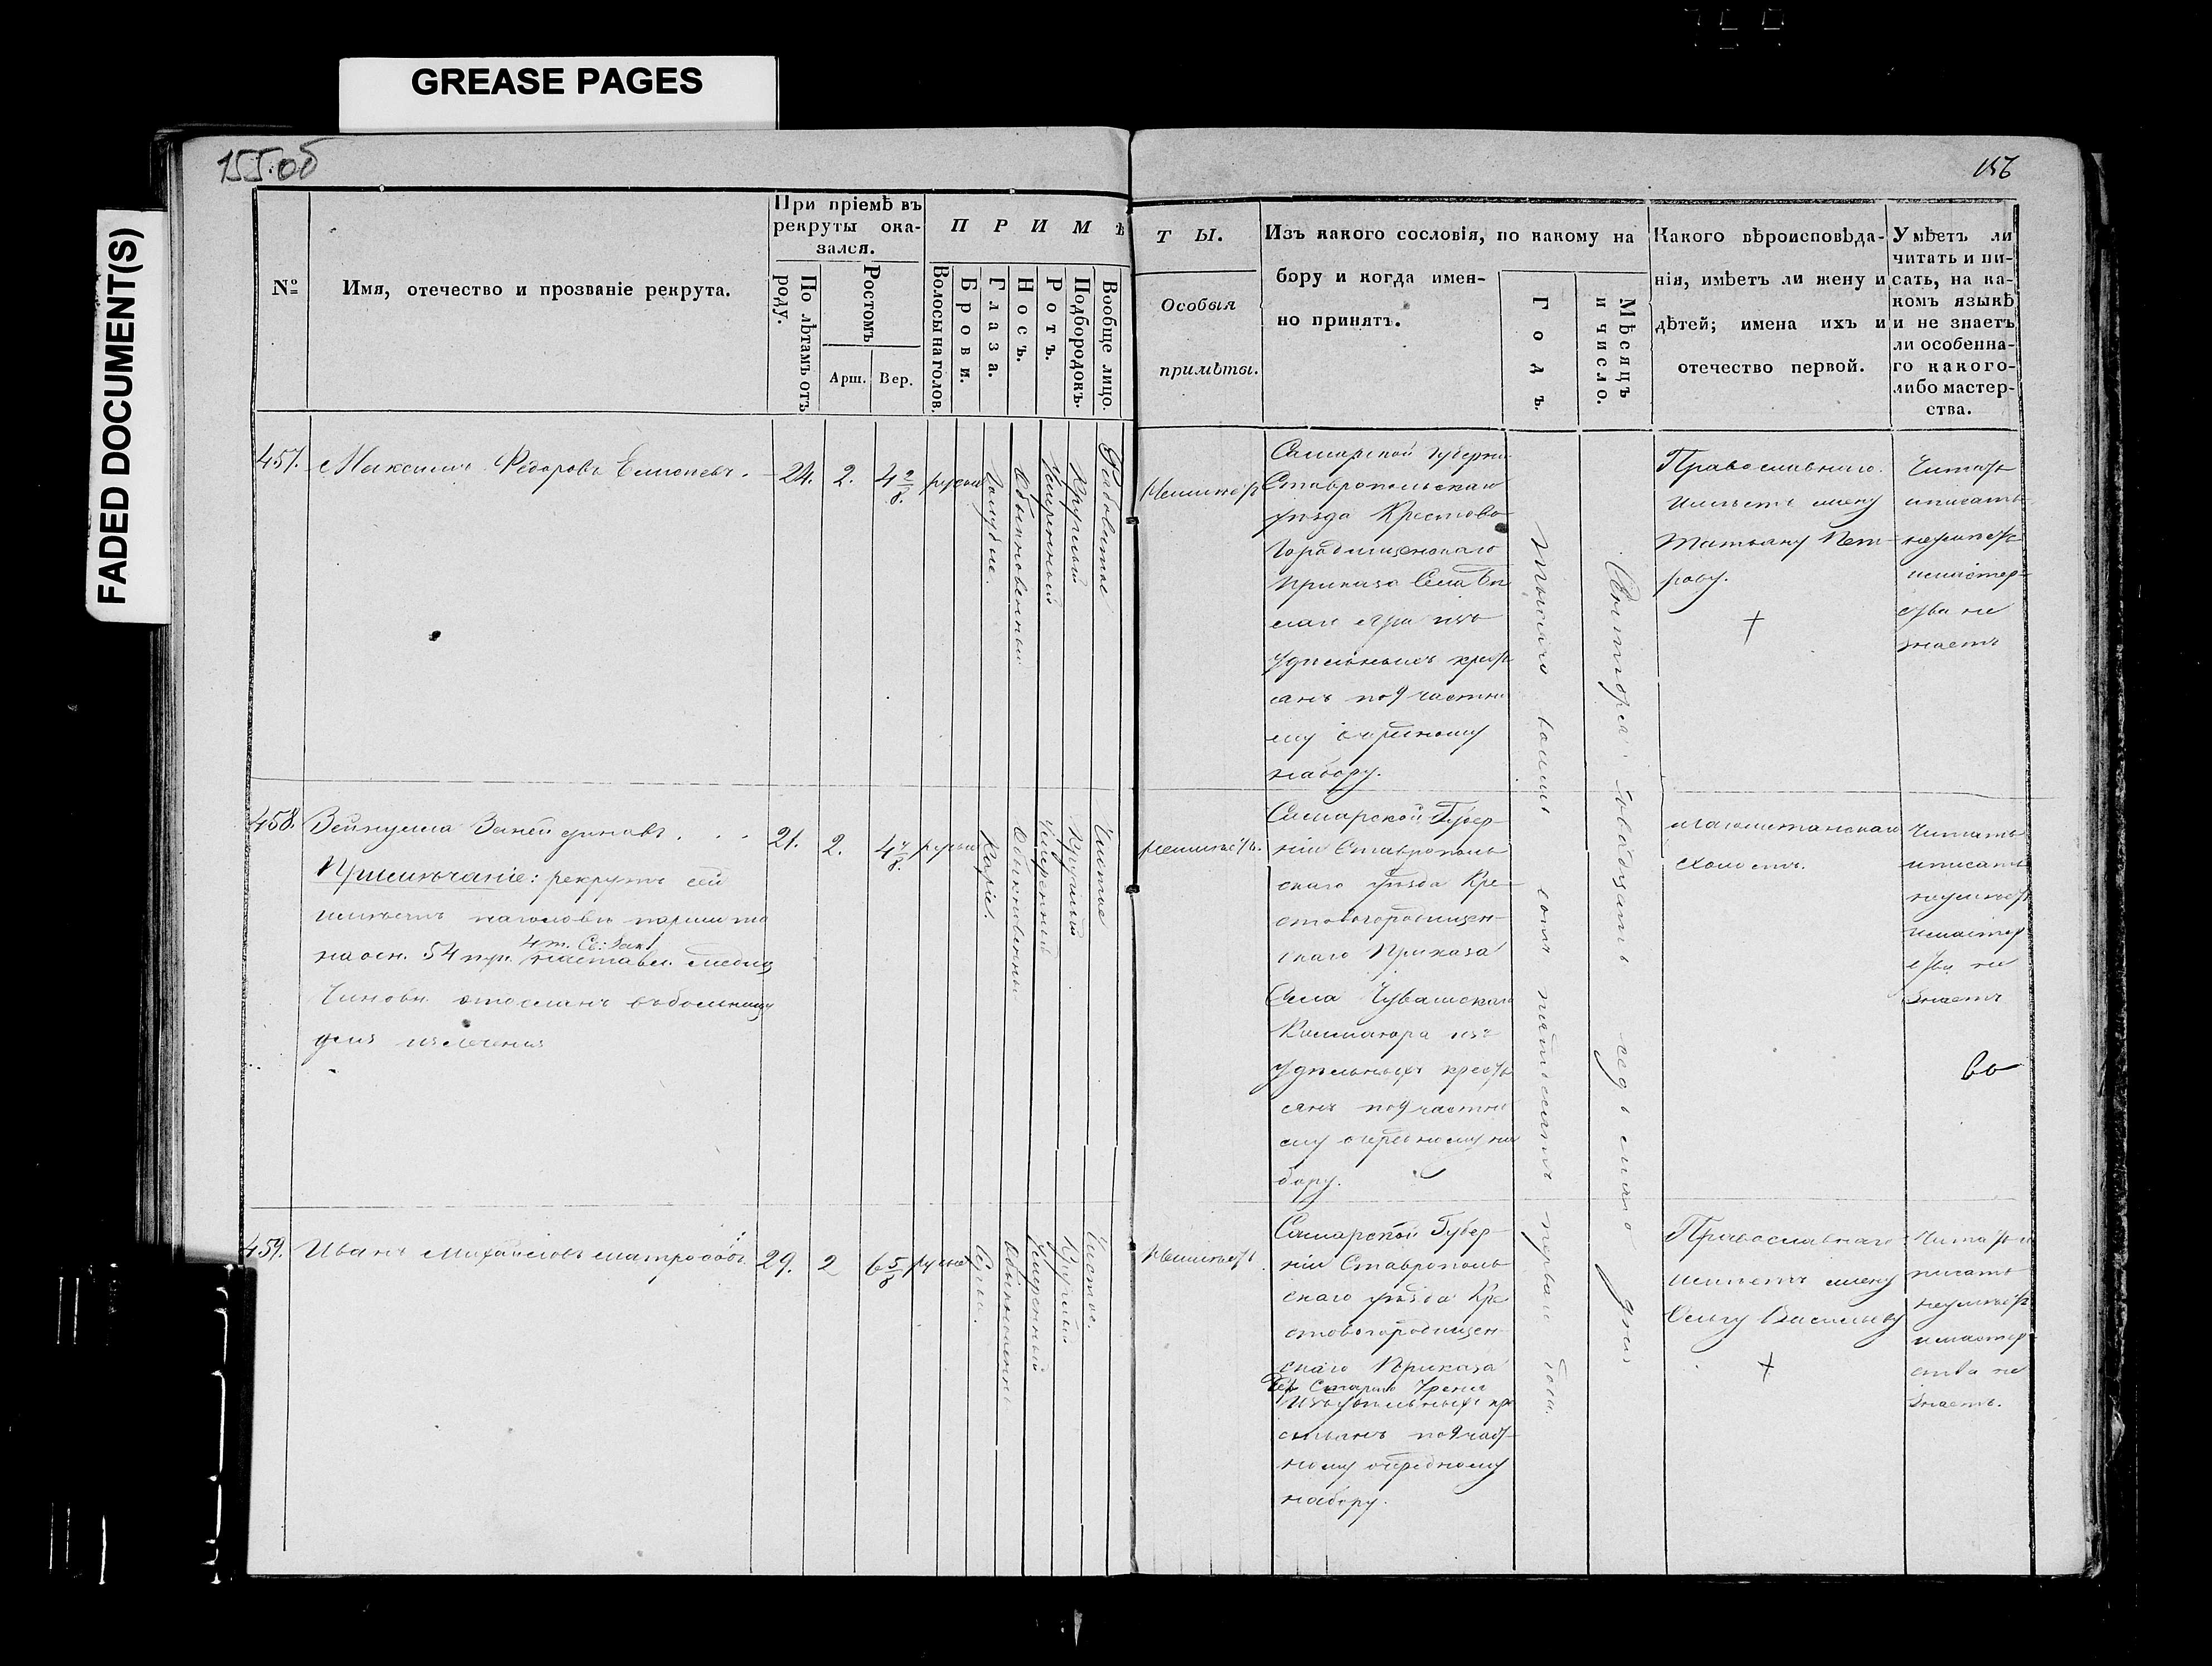 GREASE PAGES
FADED DOCUMENT(S)
155.об
156
№
Имя, отечество и прозваніе рекрута.
При пріемѣ въ
рекруты ока-
зался.
По лѣтамъ отъ
роду.
Ростомъ
Арш.
Вер.
ПРИМѢ
Волосы на голов.
Брови.
Глаза.
Носъ.
Ротъ.
Подбородокъ.
Вообще лицо.
ТЫ.
Особыя
примѣты.
Изъ какого сословія, по какому на
бору и когда имен-
но принятъ.
Годъ.
Мѣсяцъ
и число.
Какого вѣроисповѣда-
нія, имѣетъ ли жену и
дѣтей; имена ихъ и
отечество первой.
Умѣетъ ли
читать и пи-
сать, на ка-
комъ языкѣ
и не знаетъ
ли особенна-
го какого-
либо мастер-
ства.
457.
Максимъ Федоровъ
24.
2.
4 2/8.
русые
Голубые.
Обыкновенный
Умеренный
Круглый
Рябоватое
Неимѣетъ
Самарской Губерни
Ставропольскаго
уѣзда Крестово
Городищенскаго
Приказа Села
изъ
Удѣльныхъ крест
янъ по 9 частно
му очередному
набору.
Тысяча восемь сотъ пятьдесятъ перваго года.
Октября двадцать седьмаго дня
Православнаго.
Имѣетъ жену
Татьяну Пет-
рову.
Читать
и писать
неумѣетъ
и мастер-
ства не
знаетъ
458.
Примѣчаніе: рекрутъ сей
имѣетъ на головѣ паршу то
на осн. 54 пун. настав. медиц
4 т. Св: Зак.
Чиновн. отосланъ въ больницу
для излеченія
21.
2.
4 4/8.
русые
Каріе.
Обыкновенны
Умеренный
Круглый
Чистое
неимѣетъ.
Самарской Губер-
ніи Ставрополь
скаго уѣзда Кре-
стовогородищен-
скаго Приказа
Села Чувашскаго
изъ
Удѣльныхъ крестъ
янъ по 9 частно
му очередному на
бору.
магометанскаго
холостъ.
Читать
и писать
неумѣетъ
и мастер
ства не
знаетъ
459.
Иванъ Михайловъ Матросовъ
29.
2
6 5/8
русые
Серые.
Обыкновенны
Умеренный
Круглый
Чистое.
Неимѣетъ
Самарской Губер-
ніи Ставрополь
скаго уѣзда Кре
стовогородищен-
скаго Приказа
Изъ Удѣльныхъ кре
стьянъ по 9 част-
ному очередному
набору.
Православнаго
имѣетъ жену
Ольгу Васильеву
Читать и
писать
неумѣетъ
и мастер
ства не
знаетъ.